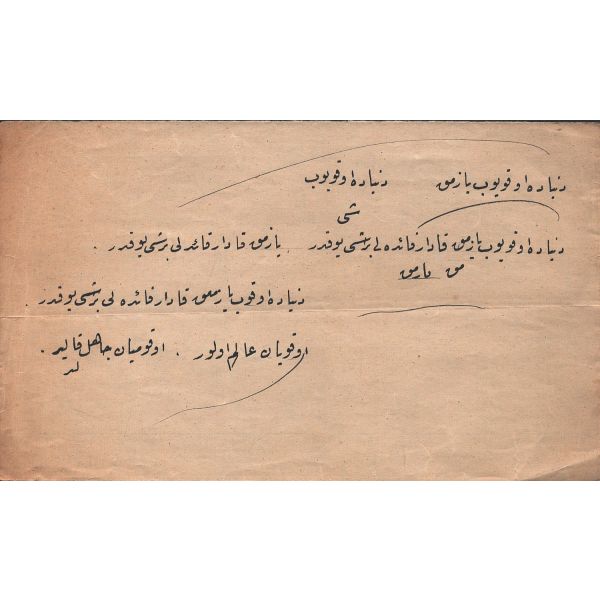 دنیاده اوقویوب یازمق دنیاده اوقویوب
شی
دنیاده اوقویوب یازمق قادار فائده لی برشی یوقدر یازمق قادار فائده لی برشی یوقدر .
مق یازمق
دنیاده اوقوب یازمعق قادار فائده لی برشی یوقدر .
اوقویان عالم اولور . اوقومیان جاهل قالیر .
لر